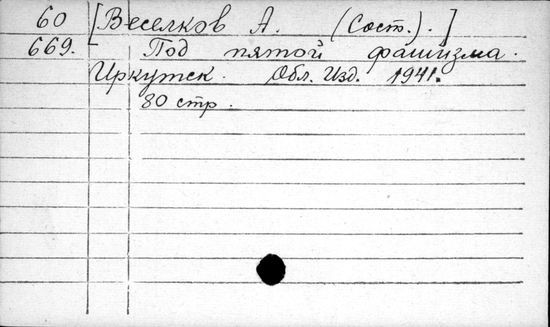 60 [Веселков А. (Сост.).]
669. Под пятой фашизма.
Иркутск. Обл. Изд. 1941.
80 стр.